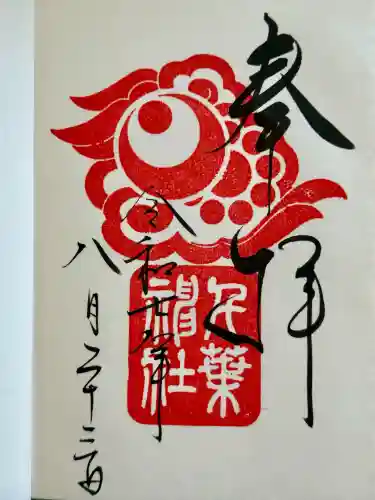 奉拝
千葉神社
令和六年
八月二十三日